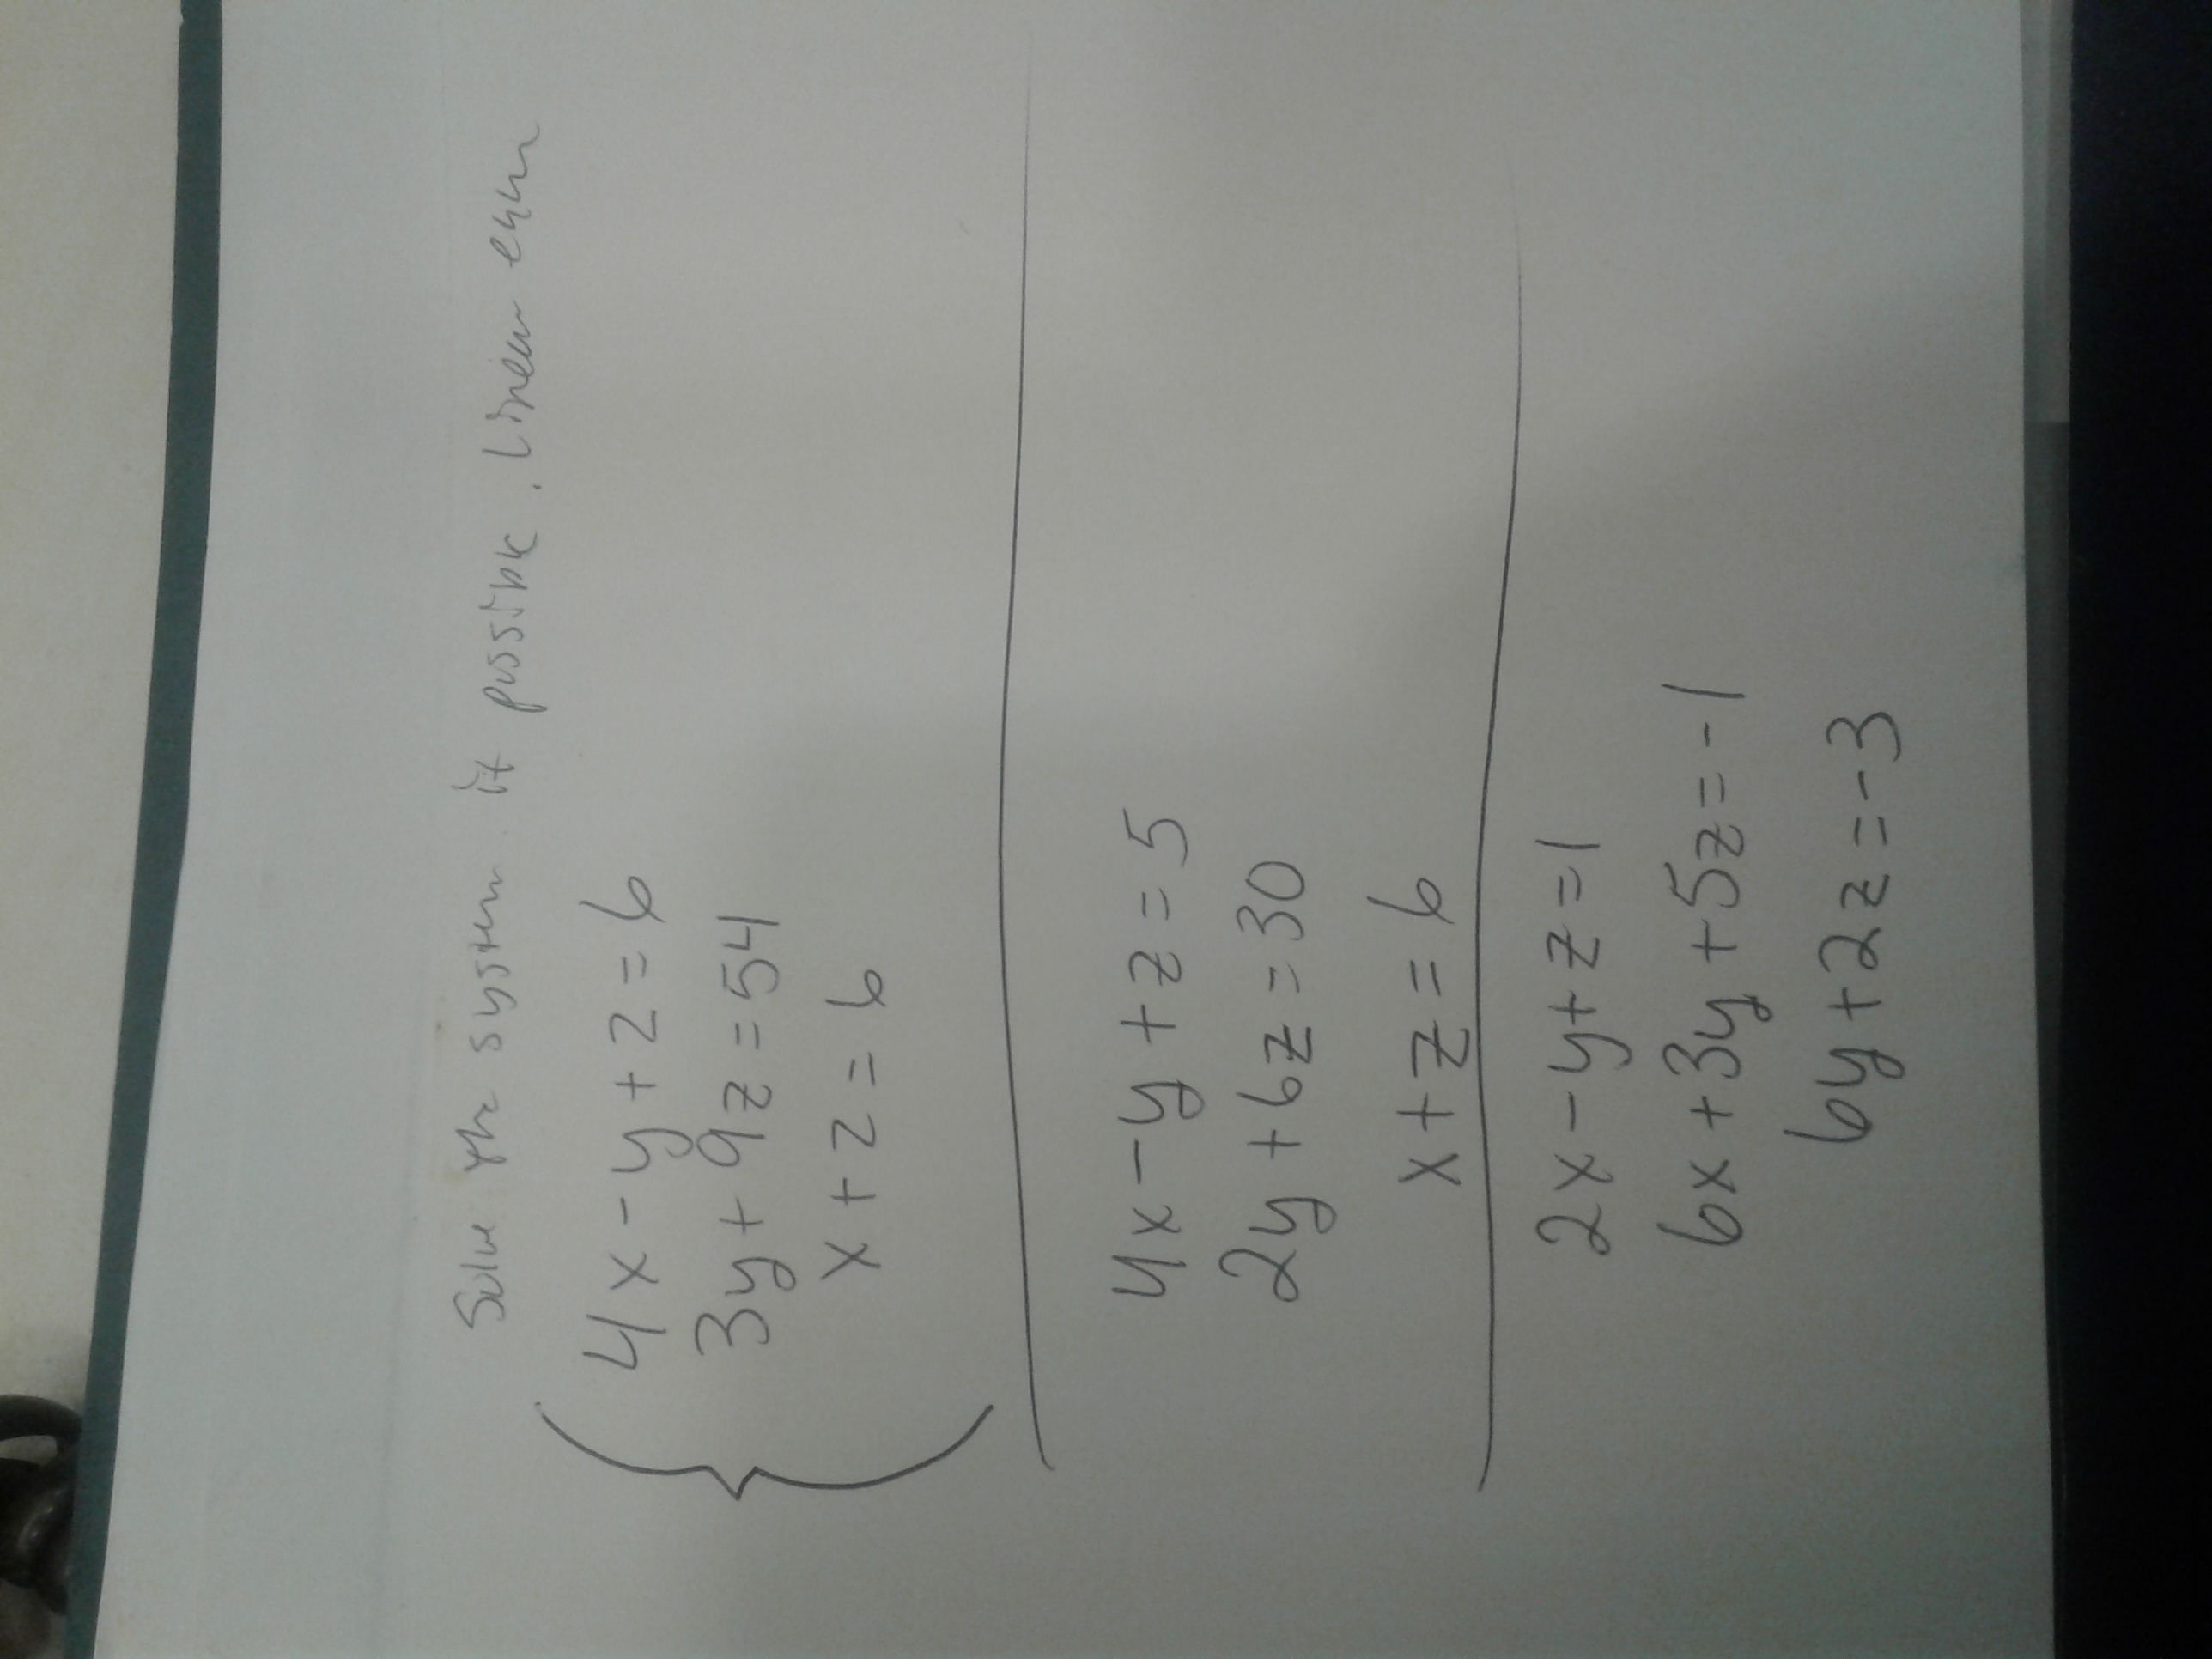 Solve the system. if possible. Linear eqn
4x - y + z = 6
3y + 9z = 54
x + z = 6
4x - y + z = 5
2y + 6z = 30
x + z = 6
2x - y + z = 1
6x + 3y + 5z = -1
6y + 2z = -3